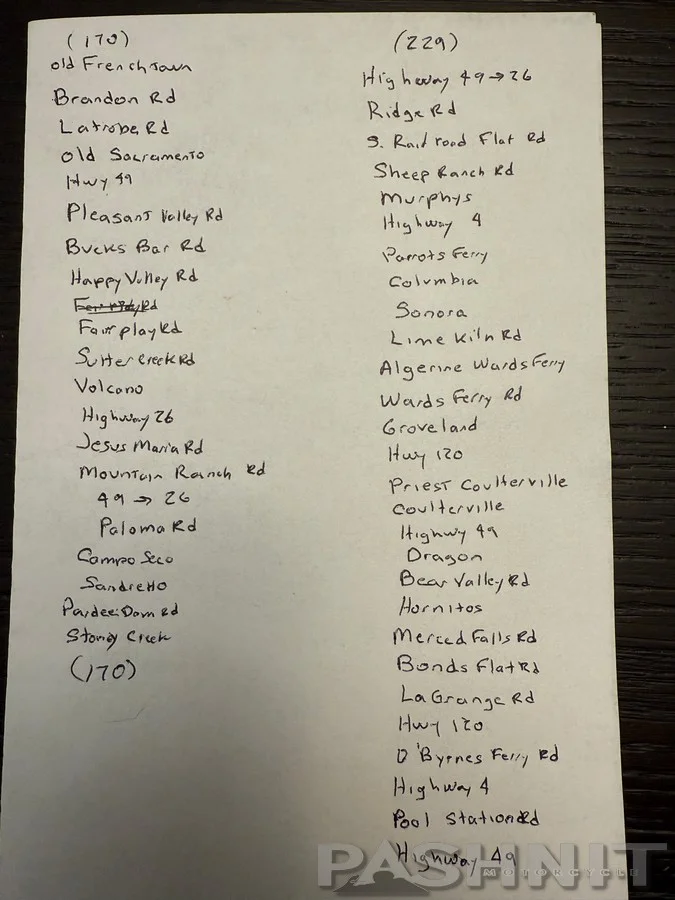 (170)
old Frenchtown
Brandon Rd
Latrobe Rd
old Sacramento
Hwy 49
Pleasant Valley Rd
Bucks Bar Rd
Happy Valley Rd
Fairplay Rd
Sutter Creek Rd
Volcano
Highway 26
Jesus Maria Rd
Mountain Ranch Rd
49 → 26
Paloma Rd
Campo Seco
Sandretto
Pardee Dam Rd
Stoney Creek
(170)
(229)
Highway 49 → 26
Ridge Rd
S. Railroad Flat Rd
Sheep Ranch Rd
Murphys
Highway 4
Parrots Ferry
Columbia
Sonora
Lime Kiln Rd
Algerine Wards Ferry
Wards Ferry Rd
Groveland
Hwy 120
Priest Coulterville
Coulterville
Highwy 49
Dragon
Bear Valley Rd
Hornitos
Merced Falls Rd
Bonds Flat Rd
La Grange Rd
Hwy 120
O'Byrnes Ferry Rd
Highway 4
Pool Station Rd
Highway 49
PASHNIT
MOTORCYCLE